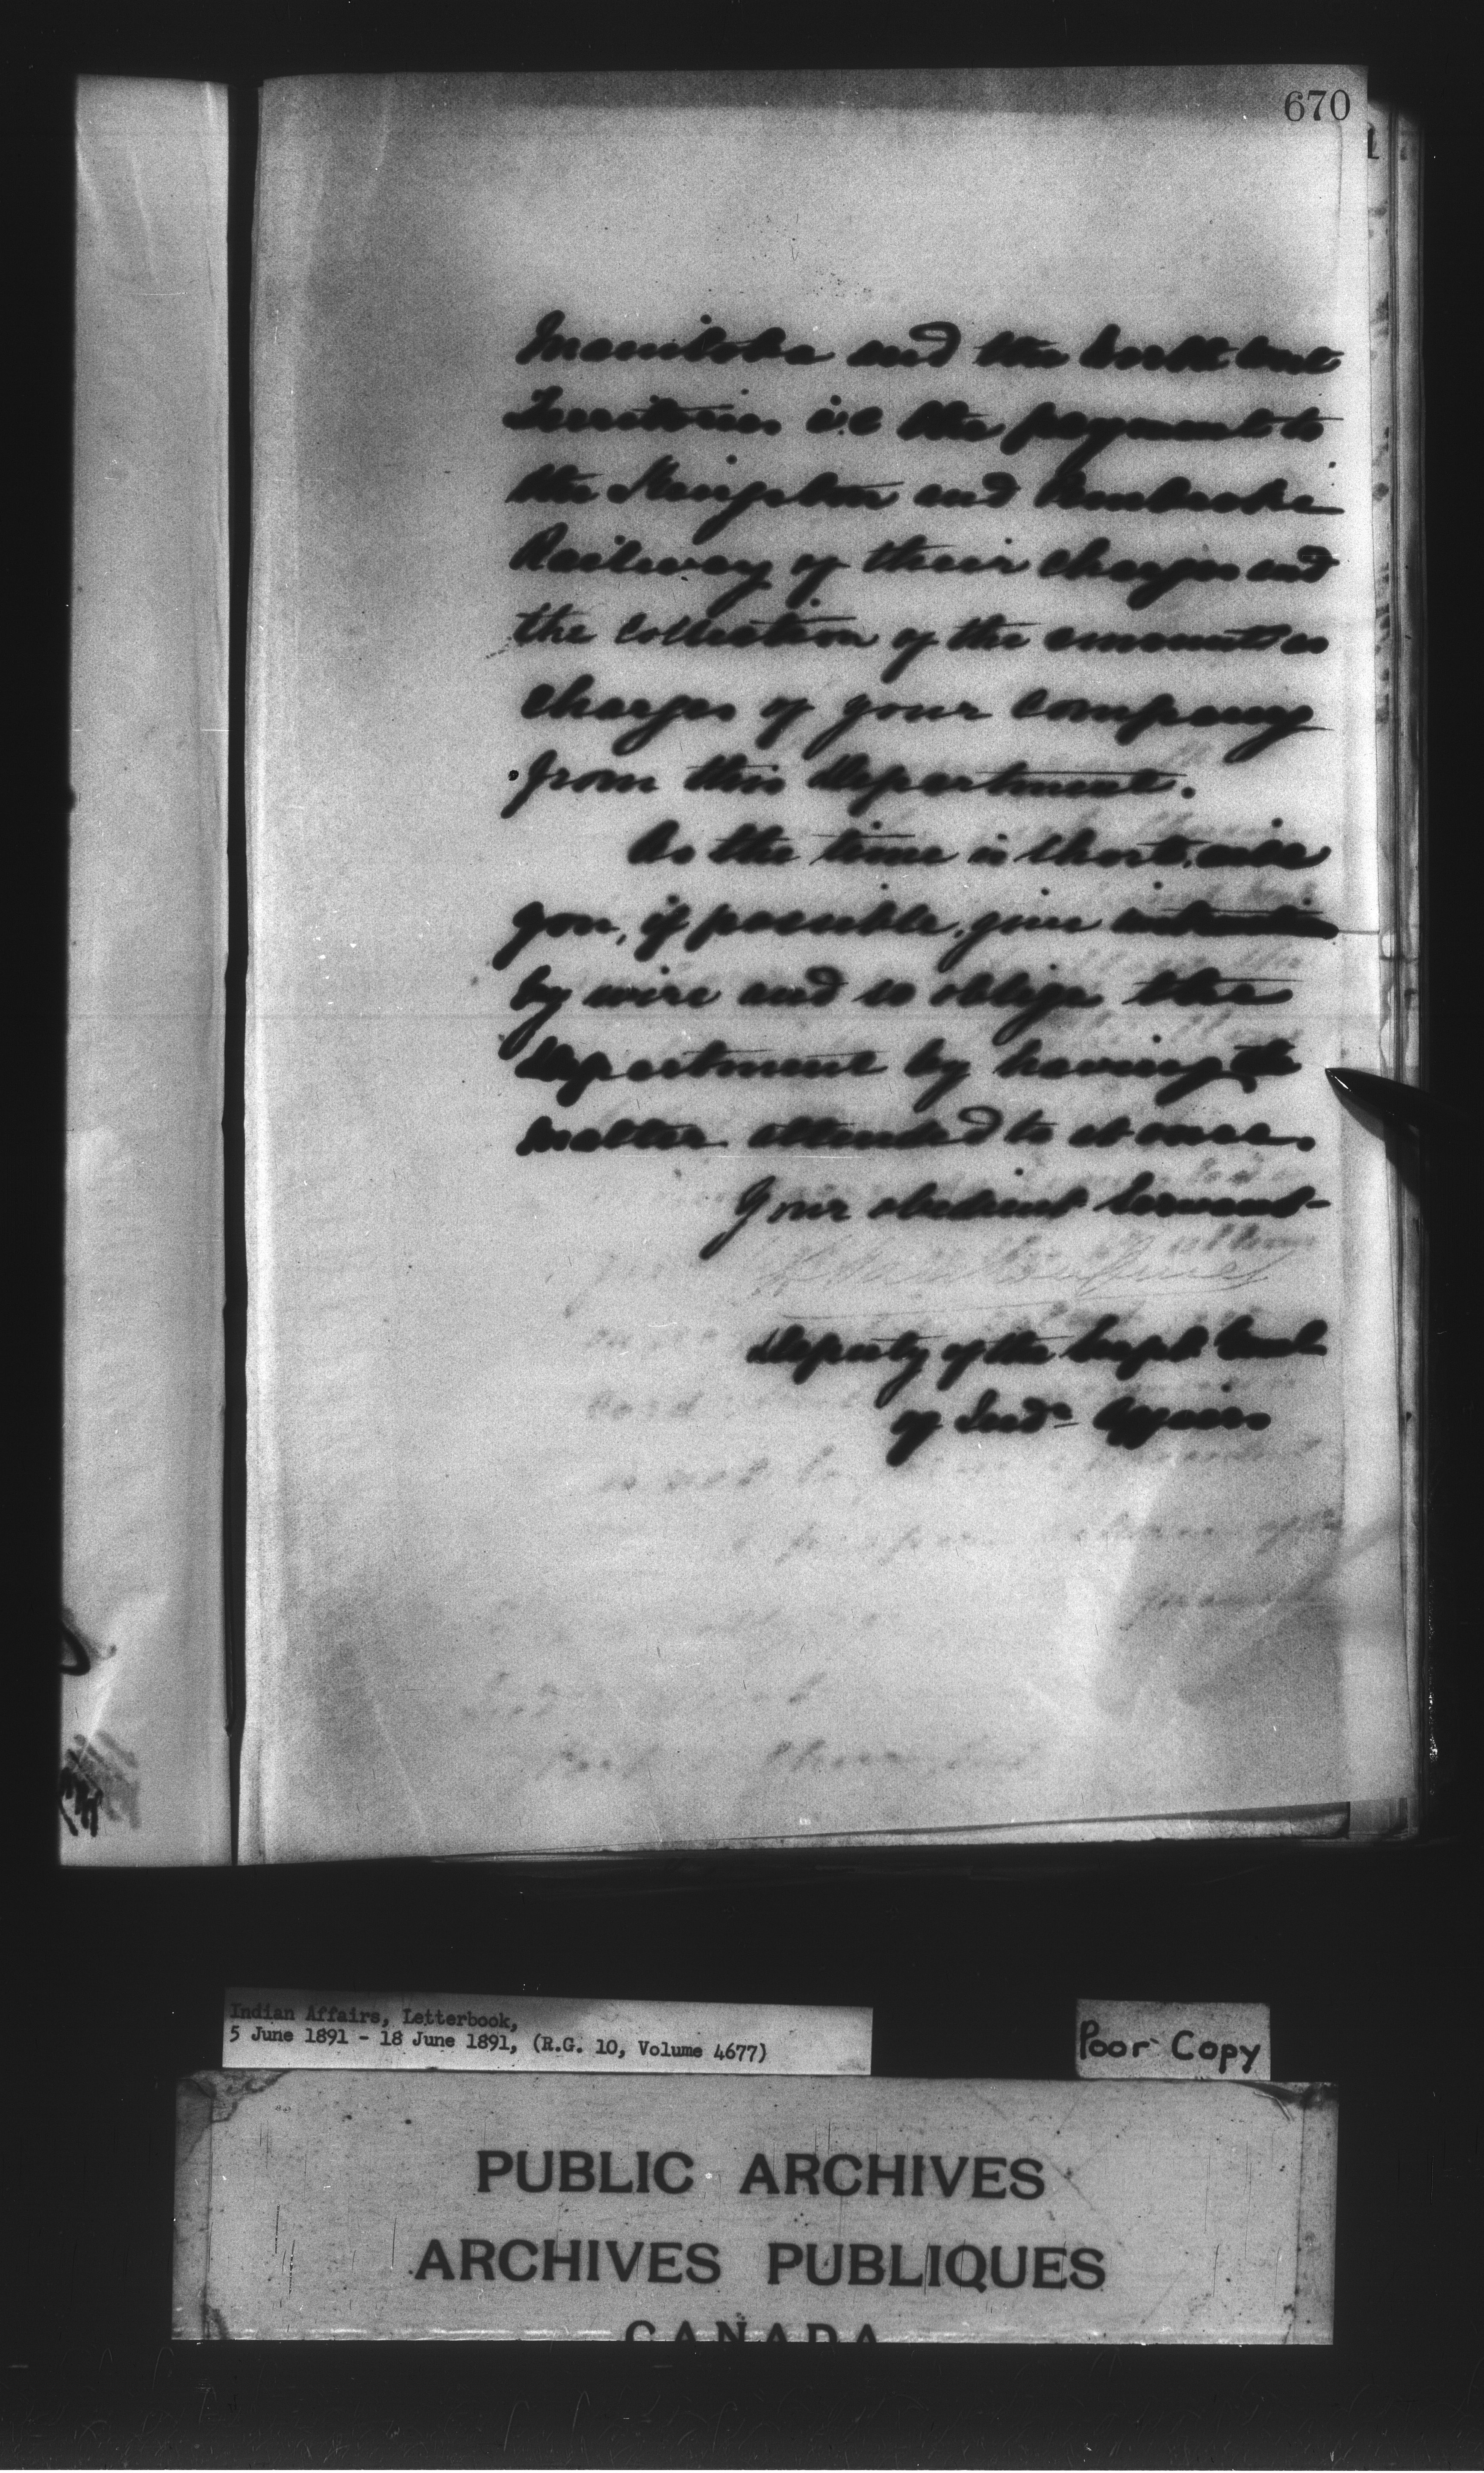 670
Manitoba and the North West
Territories i.e the payment to
the Kingston and Pembroke
Railway of their charges and
the collection of the amount as
charges of your Company
from this Department.
As the time is short, will
you, if possible, give instructions
by wire and so oblige the
Department by having the
matter attended to at once.
Your obedient Servant
Deputy of the Supt. Genl
of Indn Affairs
Indian Affairs, Letterbook,
5 June 1891 - 18 June 1891, (R.G. 10, Volume 4677)
Poor Copy
PUBLIC ARCHIVES
ARCHIVES PUBLIQUES
CANADA